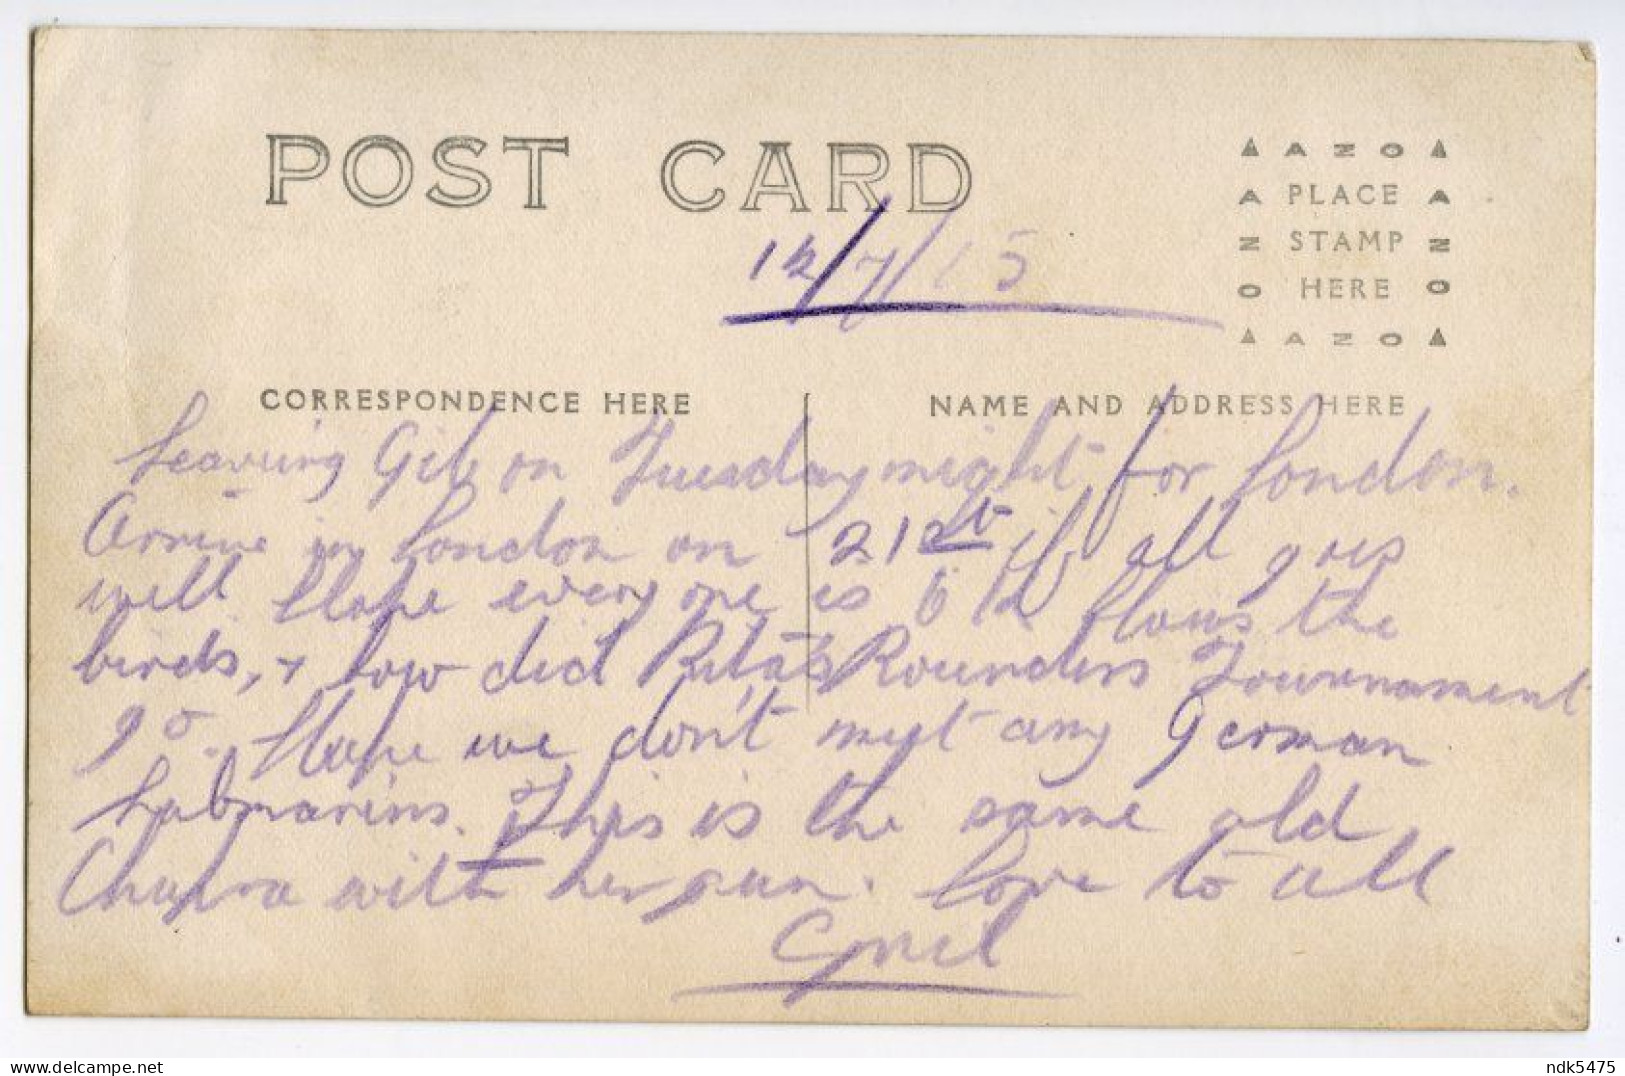 POST CARD
AZO
PLACE
STAMP
HERE
AZO
12/7/15
CORRESPONDENCE HERE
NAME AND ADDRESS HERE
Leaving Gib on Tuesday night for London.
Arrive in London on 21st if all goes
well Hope everyone is O K Hows the
birds, + how did Rita's Rounders Tournament
go. Hope we don't meet any German
Submarins. This is the same old
Chupra with her gun. Love to all
Cyril
delcampe.net
ndk5475